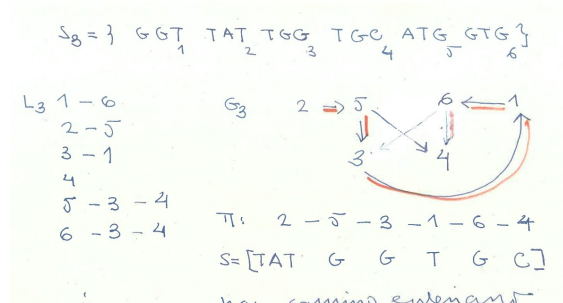 S3 = { GGT1 TAT2 TGG3 TGC4 ATG5 GTG6 }
L3 1 - 6
2 - 5
3 - 1
4
5 - 3 - 4
6 - 3 - 4
G3 2 ⇒ 5 6 ⇐ 1
3 4
Π: 2 - 5 - 3 - 1 - 6 - 4
S = [TAT G G T G C]